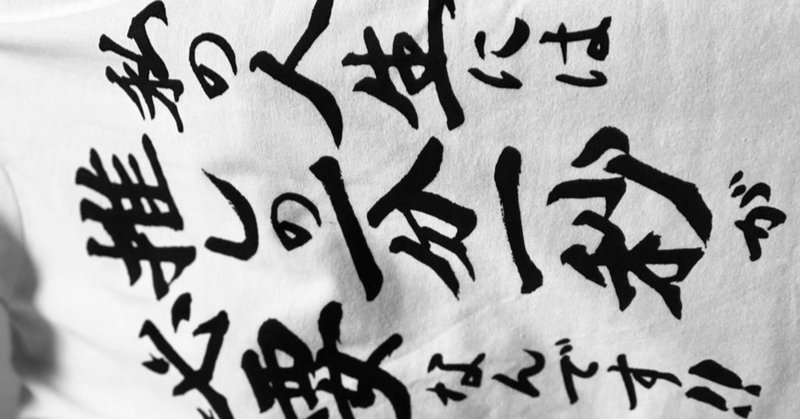 私の人生には
推しの一分一秒が
必要なんです!!